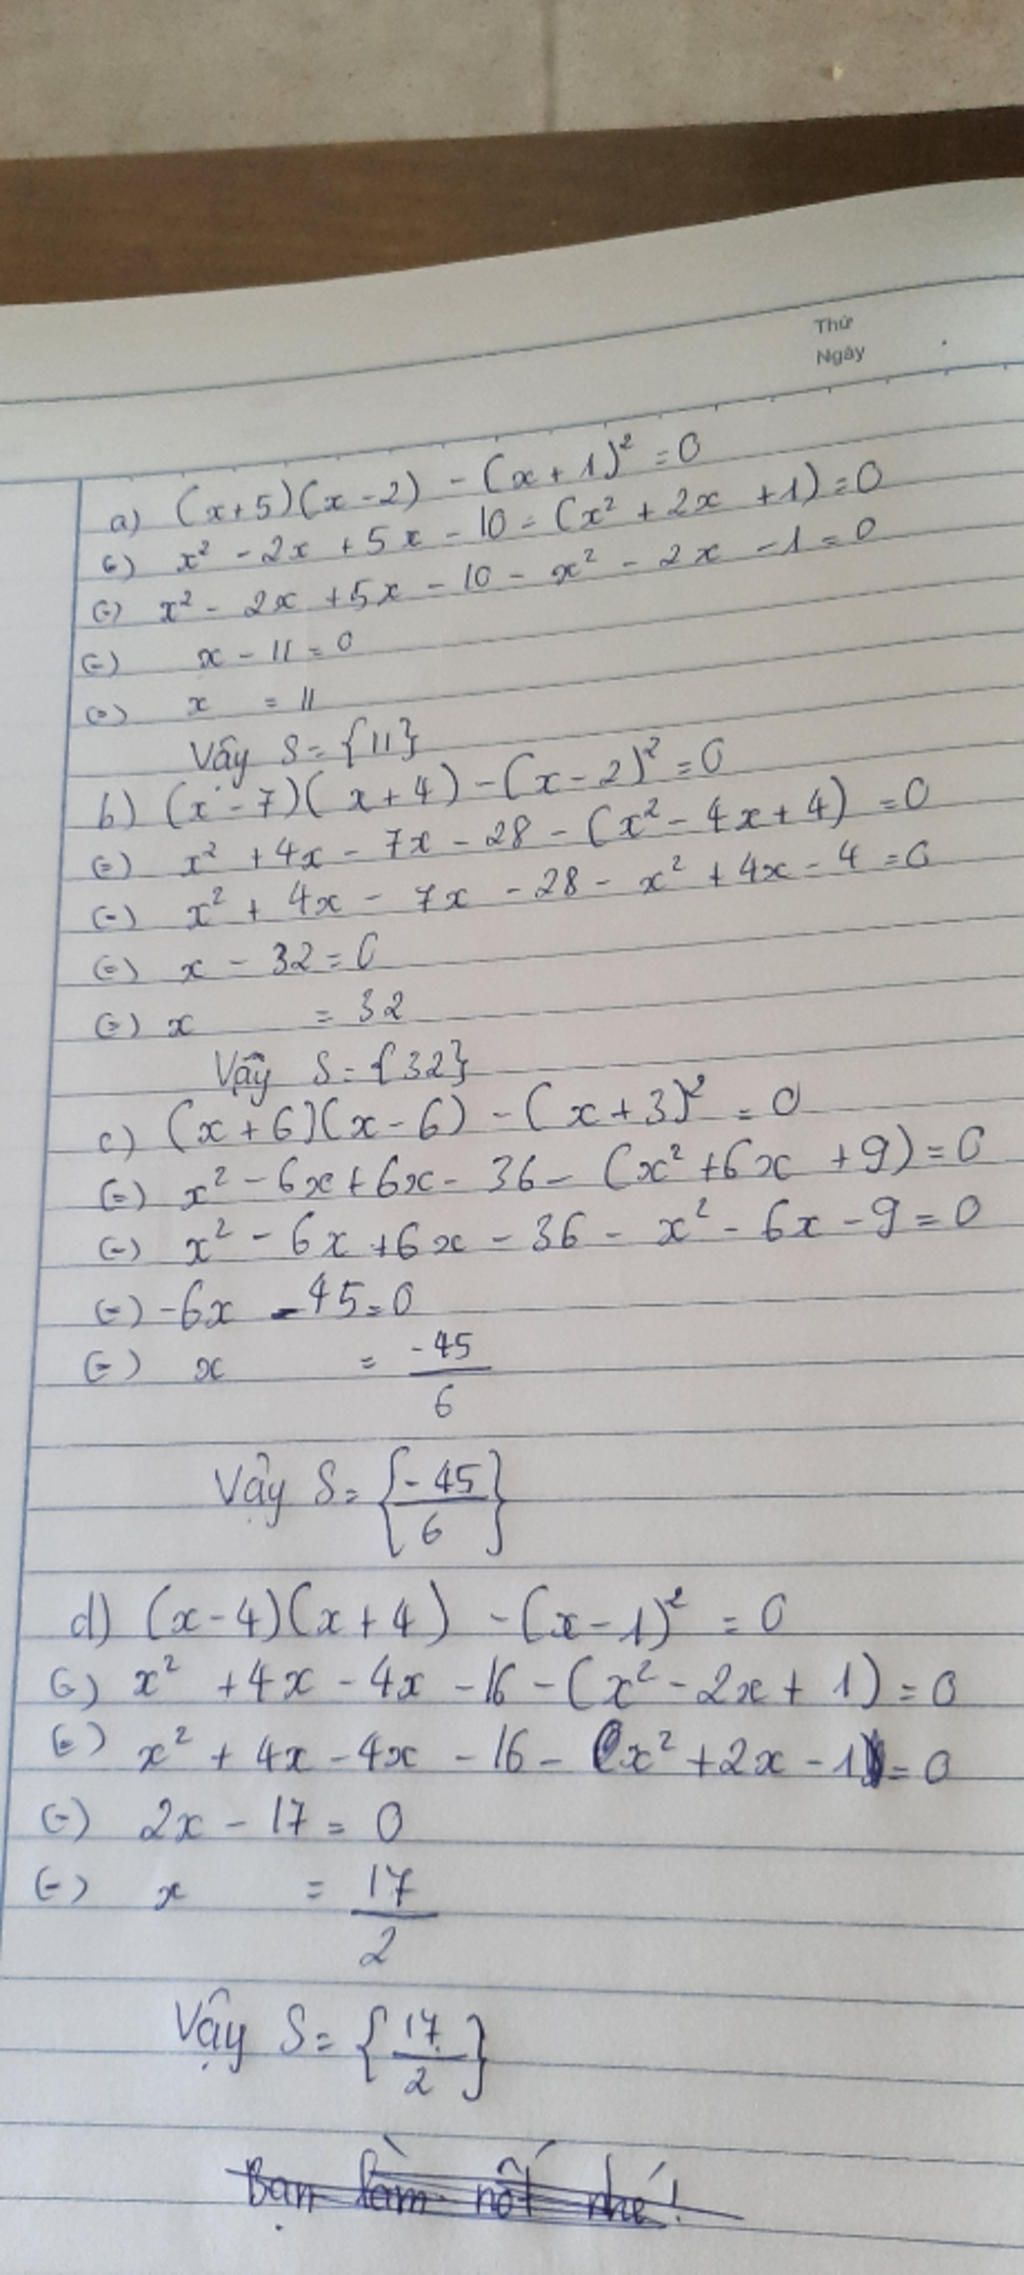 Thứ
Ngày
a) (x+5)(x-2) - (x+1)² = 0
(=) x² - 2x + 5x - 10 - (x² + 2x + 1) = 0
(=) x² - 2x + 5x - 10 - x² - 2x - 1 = 0
(=) x - 11 = 0
(=) x = 11
Vậy S = {11}
b) (x - 7)(x + 4) - (x - 2)² = 0
(=) x² + 4x - 7x - 28 - (x² - 4x + 4) = 0
(=) x² + 4x - 7x - 28 - x² + 4x - 4 = 0
(=) x - 32 = 0
(=) x = 32
Vậy S = {32}
c) (x+6)(x-6) - (x+3)² = 0
(=) x² - 6x + 6x - 36 - (x² + 6x + 9) = 0
(=) x² - 6x + 6x - 36 - x² - 6x - 9 = 0
(=) -6x - 45 = 0
(=) x = -45/6
Vậy S = {-45/6}
d) (x-4)(x+4) - (x-1)² = 0
(=) x² + 4x - 4x - 16 - (x² - 2x + 1) = 0
(=) x² + 4x - 4x - 16 - x² + 2x - 1 = 0
(=) 2x - 17 = 0
(=) x = 17/2
Vậy S = {17/2}
Bạn làm nốt nhé!